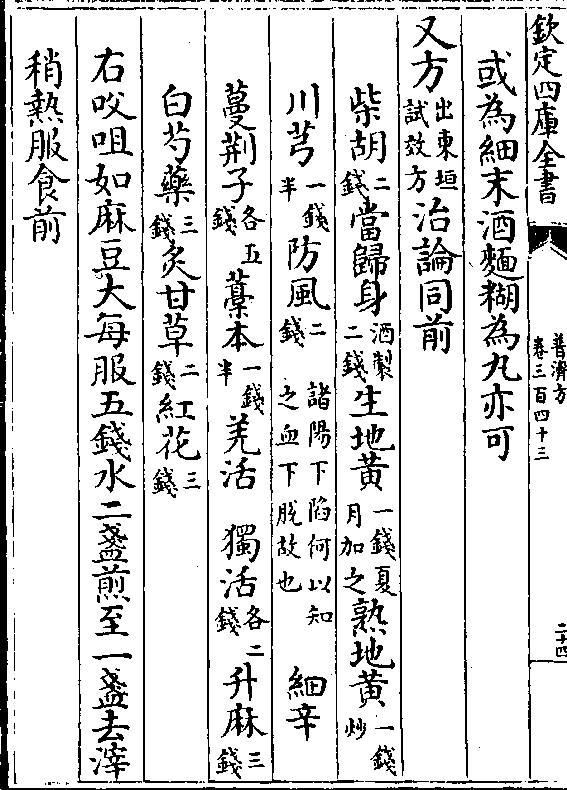 欽定四庫全書
普濟方
卷三百四十三
二十四
或為細末酒麵糊為丸亦可
又方出東垣試效方治論同前
柴胡二錢當歸身酒製二錢生地黃一錢夏月加之熟地黃一錢炒
川芎一錢半防風二錢諸陽下陷何以知之血下脫故也細辛
蔓荆子各五錢藁本一錢半羌活獨活各二錢升麻三錢
白芍藥三錢炙甘草二錢紅花三錢
右㕮咀如麻豆大每服五錢水二盞煎至一盞去滓
稍熱服食前